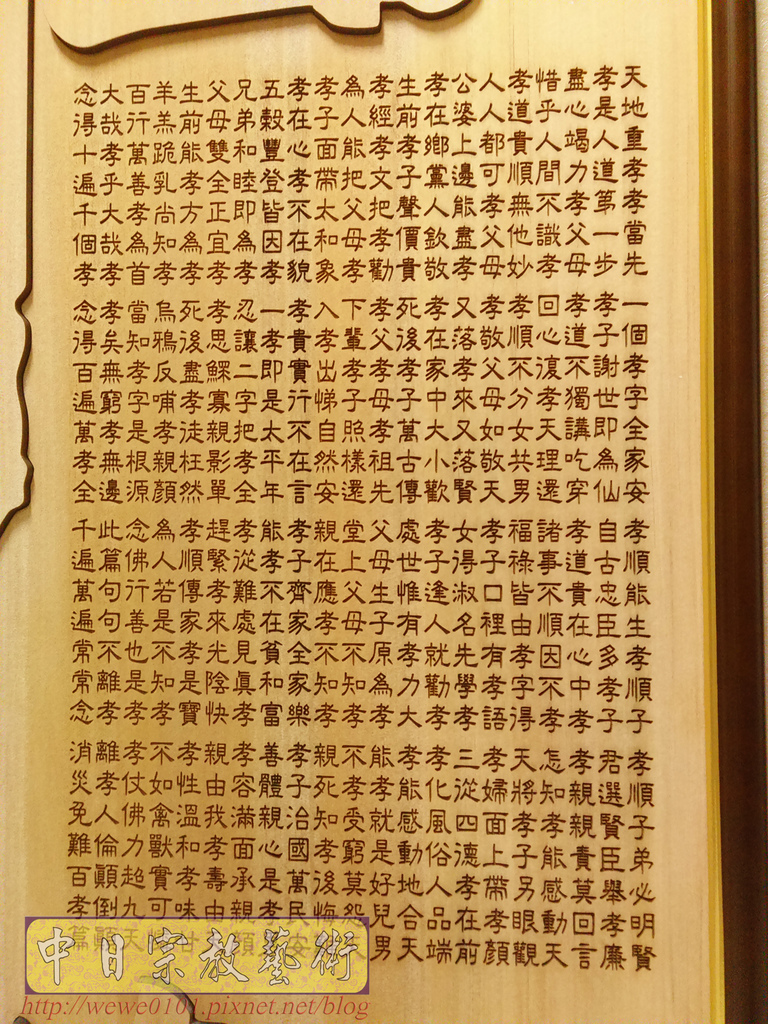 天地重孝孝當先一個孝字全家安孝順能生孝順子孝順子弟必明賢
孝是人道第一步孝子謝世即為仙自古忠臣多孝子君選賢臣舉孝廉
盡心竭力孝父母孝道不獨講吃穿孝道貴在心中孝孝親親責莫回言
惜乎人間不識孝回心復孝天理還諸事不順因不孝怎知孝能感動天
孝道貴順無他妙孝順不分女共男福祿皆由孝字得天將孝子另眼觀
人人都可孝父母孝敬父母如敬天孝子口裡有孝語孝婦面上帶孝顏
公婆上邊能盡孝又落孝來又落賢女得淑名先學孝三從四德孝在前
孝在鄉黨人欽敬孝在家中大小歡孝子逢人就勸孝孝化風俗人品端
生前孝子聲價貴死後孝子萬古傳處世惟有孝力大孝能感動地合天
孝經孝文把孝勸孝父孝母孝祖先父母生子原為孝能孝就是好兒男
為人能把父母孝下輩孝子照樣還堂上父母不知孝不孝受窮莫怨天
孝子面帶太和象入孝出悌自然安親在應孝不知孝親死知孝後悔
孝在心孝不在貌孝貴實行不在言孝子齊家全家樂孝子治國萬民安
五穀豐登皆因孝一孝即是太平年能孝不在貧和富善體親心是孝
兄弟和睦即為孝忍讓二字把孝全孝從難處見眞孝孝容滿面承親顏
父母雙全正宜孝孝思鰥寡親影單趕緊孝來光陰快親由我孝壽由
生前能孝方為孝死後盡孝徒枉然孝順傳家孝是寶孝性溫和孝味甘
羊羔跪乳尚知孝烏鴉反哺孝親顏為人若是不知孝不如禽獸實可
百行萬善孝為首當知孝字是根源念佛行善也是孝孝仗佛力超九天
大哉孝乎大哉孝孝矣無窮孝無邊此篇句句不離孝離孝人倫顚倒顚
念得十遍千個孝念得百遍萬孝全千遍萬遍常常念消災免難百孝篇
中日宗教藝術
http://wewe0101.pixnet.net/blog